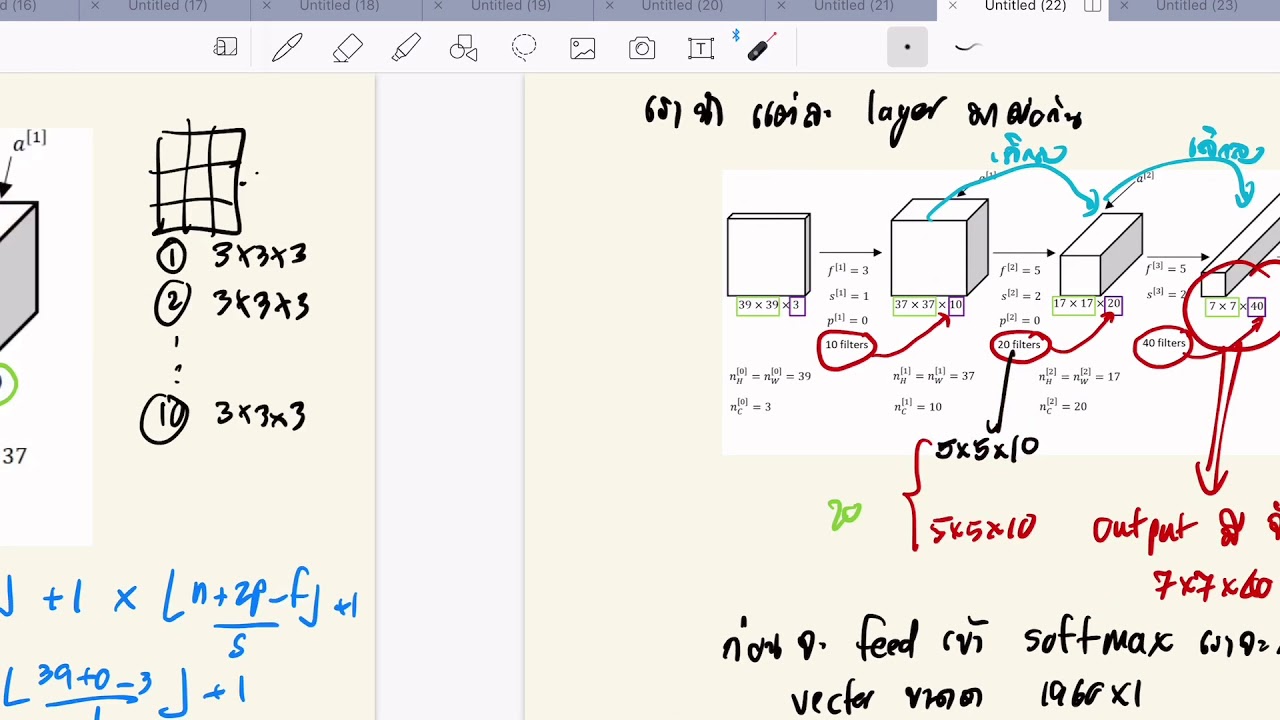 (16)
Untitled (17)
Untitled (18)
Untitled (19)
Untitled (20)
Untitled (21)
Untitled (22)
Untitled (23)
T
a[1]
① 3×3×3
② 3×3×3
⋮
⑩ 3×3×3
37
⌋ + 1 × ⌊n+2p-f⌋ + 1
s
⌊39+0-3⌋ + 1
1
เรานำ แต่ละ layer มาต่อกัน
a[1]
a[2]
39 × 39 × 3
37 × 37 × 10
17 × 17 × 20
7 × 7 × 40
f[1] = 3
s[1] = 1
p[1] = 0
10 filters
f[2] = 5
s[2] = 2
p[2] = 0
20 filters
f[3] = 5
s[3] = 2
40 filters
n_H[0] = n_W[0] = 39
n_C[0] = 3
n_H[1] = n_W[1] = 37
n_C[1] = 10
n_H[2] = n_W[2] = 17
n_C[2] = 20
5×5×10
20
5×5×10
output
7×7×40
ก่อนจะ feed เข้า softmax เราจะ
vector ขนาด 1960×1